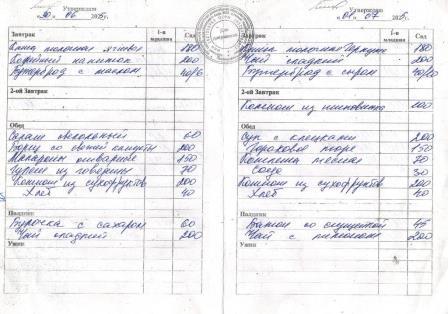 Утверждаю
30 06 2015г.
I-я младшая
Сад
Завтрак
Каша молочная ячневая 180
Кофейный напиток 200
Бутерброд с маслом 40/6
2-ой Завтрак
Обед
Салат свекольный 60
Борщ со свежей капусты 200
Макароны отварные 150
Гуляш из говядины 70
Компот из сухофруктов 200
Хлеб 40
Полдник
Булочка с сахаром 60
Чай сладкий 200
Ужин
Утверждаю
01 07 2015г.
I-я младшая
Сад
Завтрак
Каша молочная Геркулес 180
Чай сладкий 200
Бутерброд с сыром
2-ой Завтрак
Компот из шиповника 100
Обед
Суп с клецками 200
Гороховое пюре 150
Котлета мясная 70
Соус 30
Компот из сухофруктов 200
Хлеб 40
Полдник
Батон со сгущеткой 45
Чай с лимоном 200
Ужин